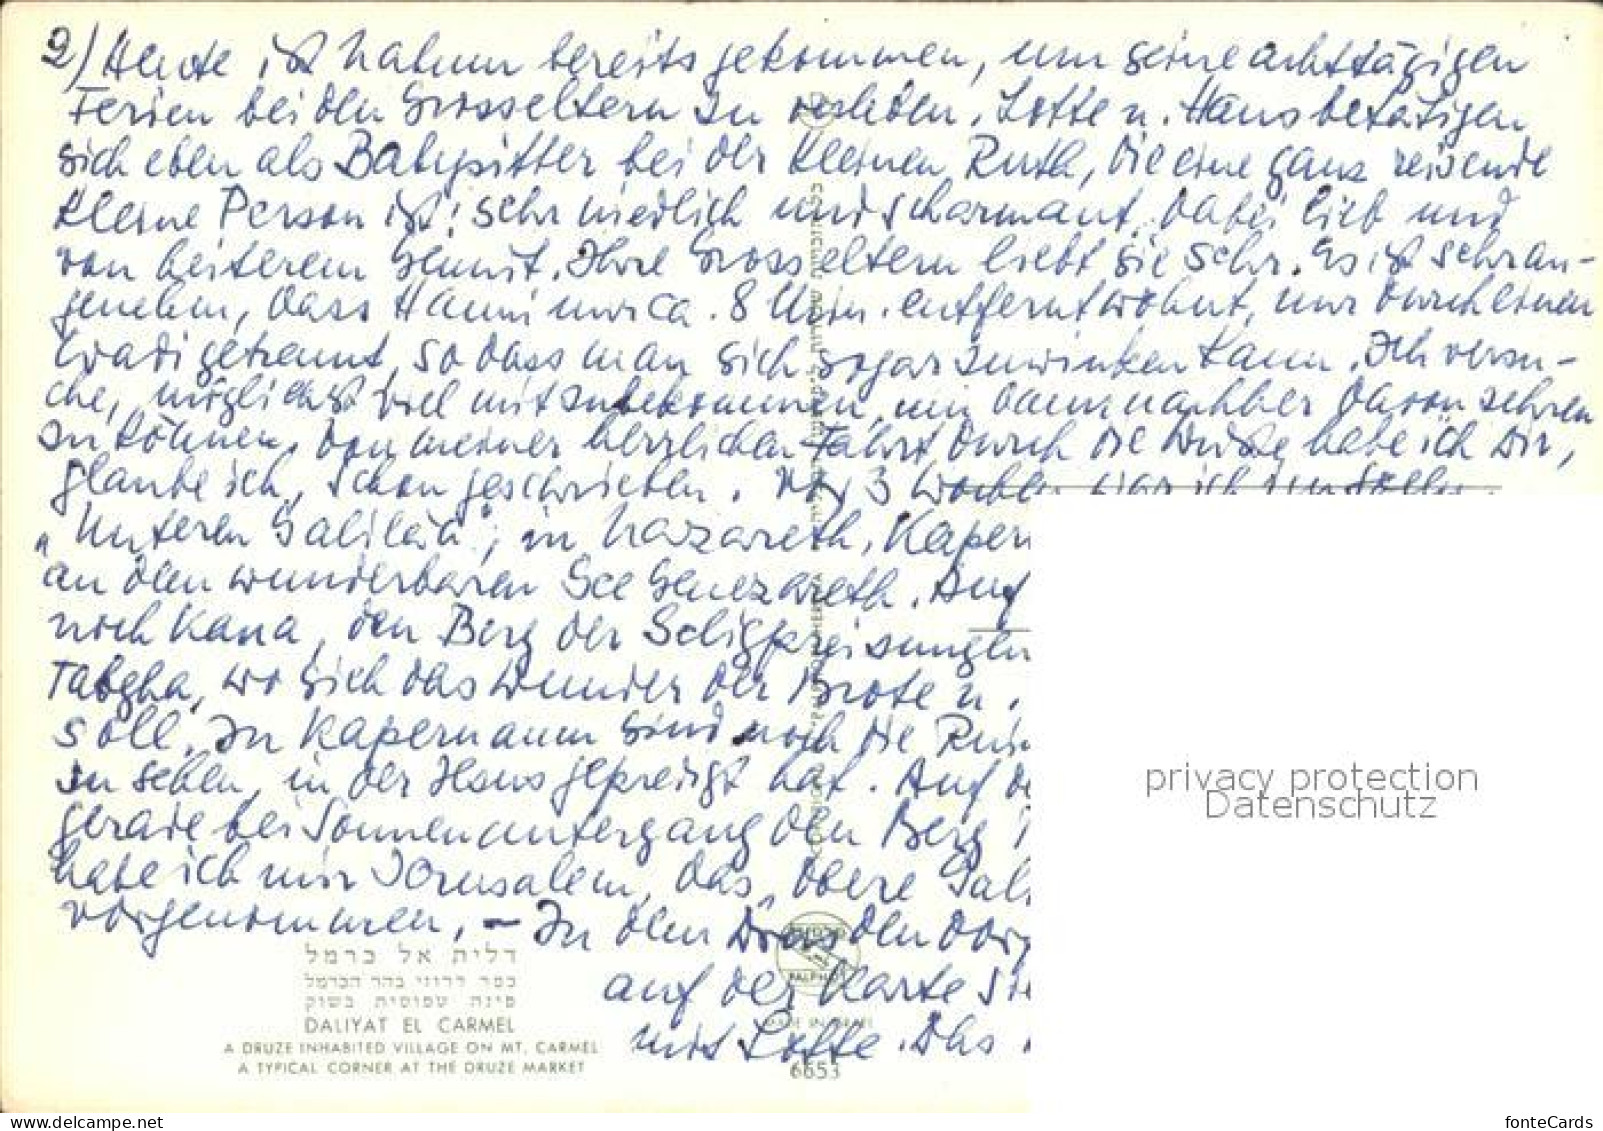 2) Heute ist Nahum bereits gekommen, um seine achttägigen
Ferien bei den Grosseltern zu verleben. Lotte u. Hans betätigen
sich eben als Babysitter bei der kleinen Ruth, die eine ganz reizende
kleine Person ist! Sehr niedlich und scharmant. Dabei lieb und
von heiterem Gemüt. Ihre Grosseltern liebt sie sehr. Es ist sehr an-
genehm, dass Hanni nur ca. 8 Min. entfernt wohnt, nur durch einen
Wadi getrennt, so dass man sich sogar zuwinken kann. Ich versu-
che, möglichst viel mitzubekommen, um dann nachher davon zehren
zu können. Von meiner herrlichen Fahrt durch die Wüste habe ich Dir,
glaube ich, schon geschrieben. Vor 3 Wochen war ich im
„Unteren Galiläa", in Nazareth, Kapern
an dem wunderbaren See Genezareth. Auf
noch Kana, den Berg der Seligpreisungen
Tabgha, wo sich das Wunder der Brote u.
soll. In Kapernaum sind noch die Ruin
zu sehen, in der Jesus gepredigt hat. Auf de
gerade bei Sonnenuntergang den Berg T
habe ich mir Jerusalem, das „Obere Gali
vorgenommen. – In dem Drusendorf
auf der Karte sie
mit Lotte. Das
דלית אל כרמל
כפר דרוזי בהר הכרמל
פינה טפוסית בשוק
DALIYAT EL CARMEL
A DRUZE INHABITED VILLAGE ON MT. CARMEL
A TYPICAL CORNER AT THE DRUZE MARKET
PALPHOT
MADE IN ISRAEL
6653
privacy protection
Datenschutz
www.delcampe.net
fonteCards